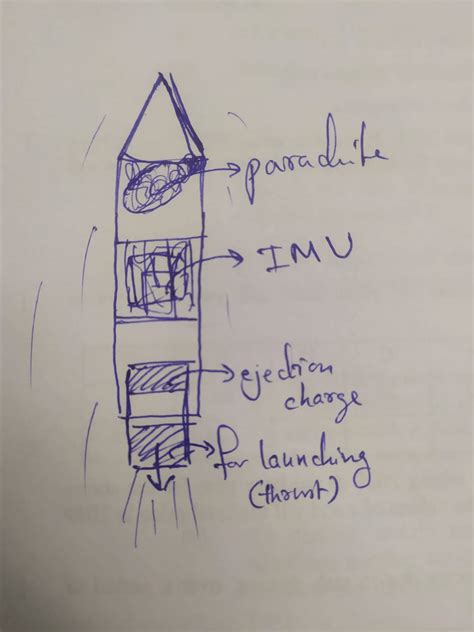 parachute
IMU
ejection
charge
for launching
(thrust)